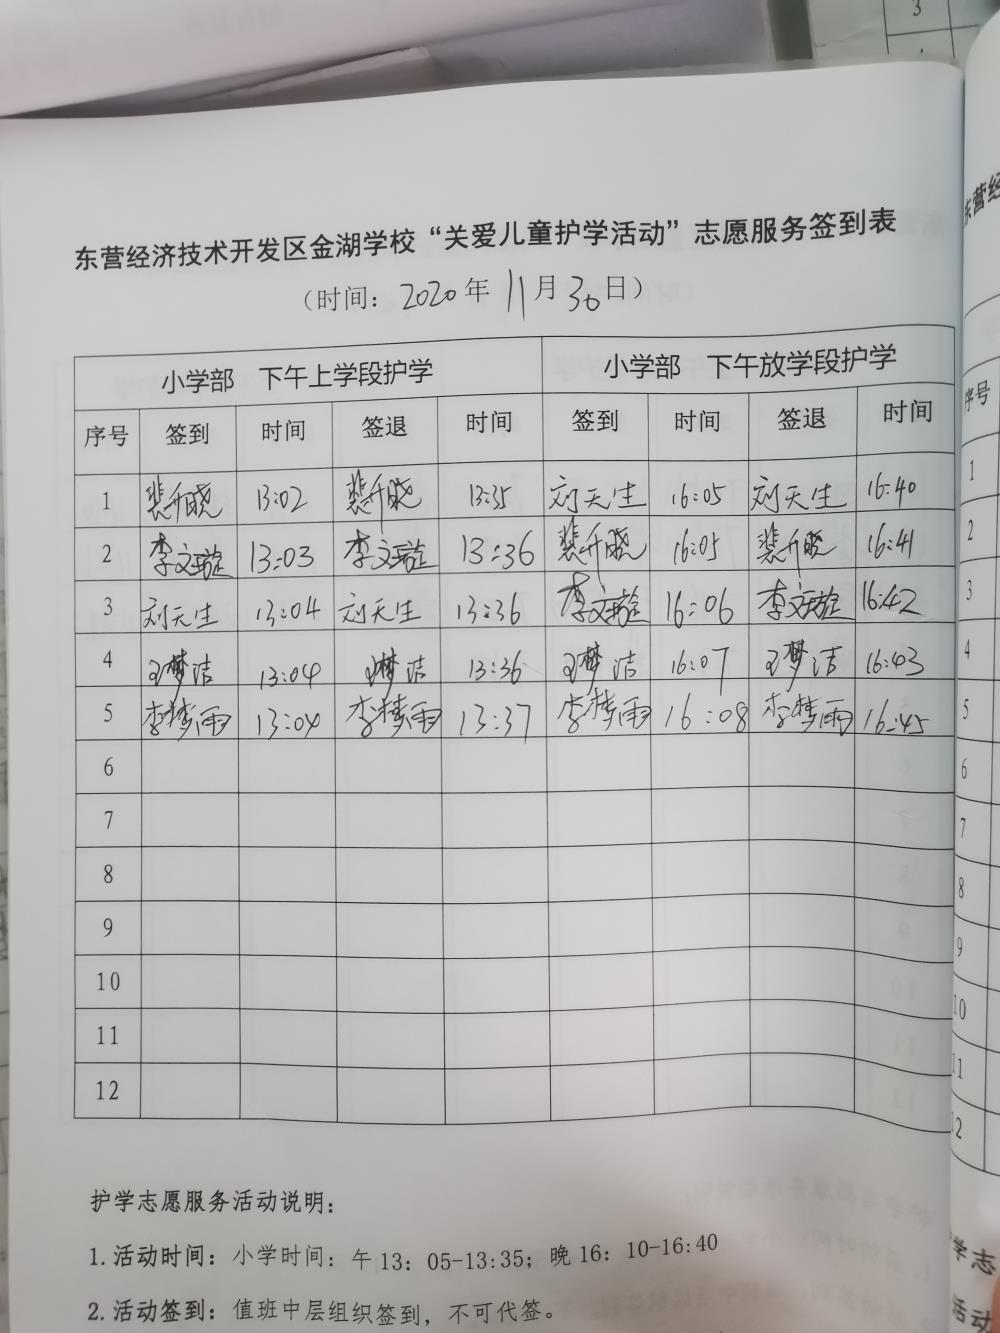 3
东营经济技术开发区金湖学校“关爱儿童护学活动”志愿服务签到表
（时间：2020年 11月30日）
小学部 下午上学段护学 小学部 下午放学段护学
序号 签到 时间 签退 时间 签到 时间 签退 时间
1 裴升晓 13:02 裴升晓 13:35 刘天生 16:05 刘天生 16:40
2 李文璇 13:03 李文璇 13:36 裴升晓 16:05 裴升晓 16:41
3 刘天生 13:04 刘天生 13:36 李文璇 16:06 李文璇 16:42
4 王梦洁 13:04 王梦洁 13:36 王梦洁 16:07 王梦洁 16:43
5 李梦雨 13:04 李梦雨 13:37 李梦雨 16:08 李梦雨 16:45
6
7
8
9
10
11
12
护学志愿服务活动说明：
1.活动时间：小学时间：午13：05-13:35；晚16：10-16:40
2.活动签到：值班中层组织签到，不可代签。
东营经
序号
1
2
3
4
5
6
7
8
9
10
11
12
学志
活动